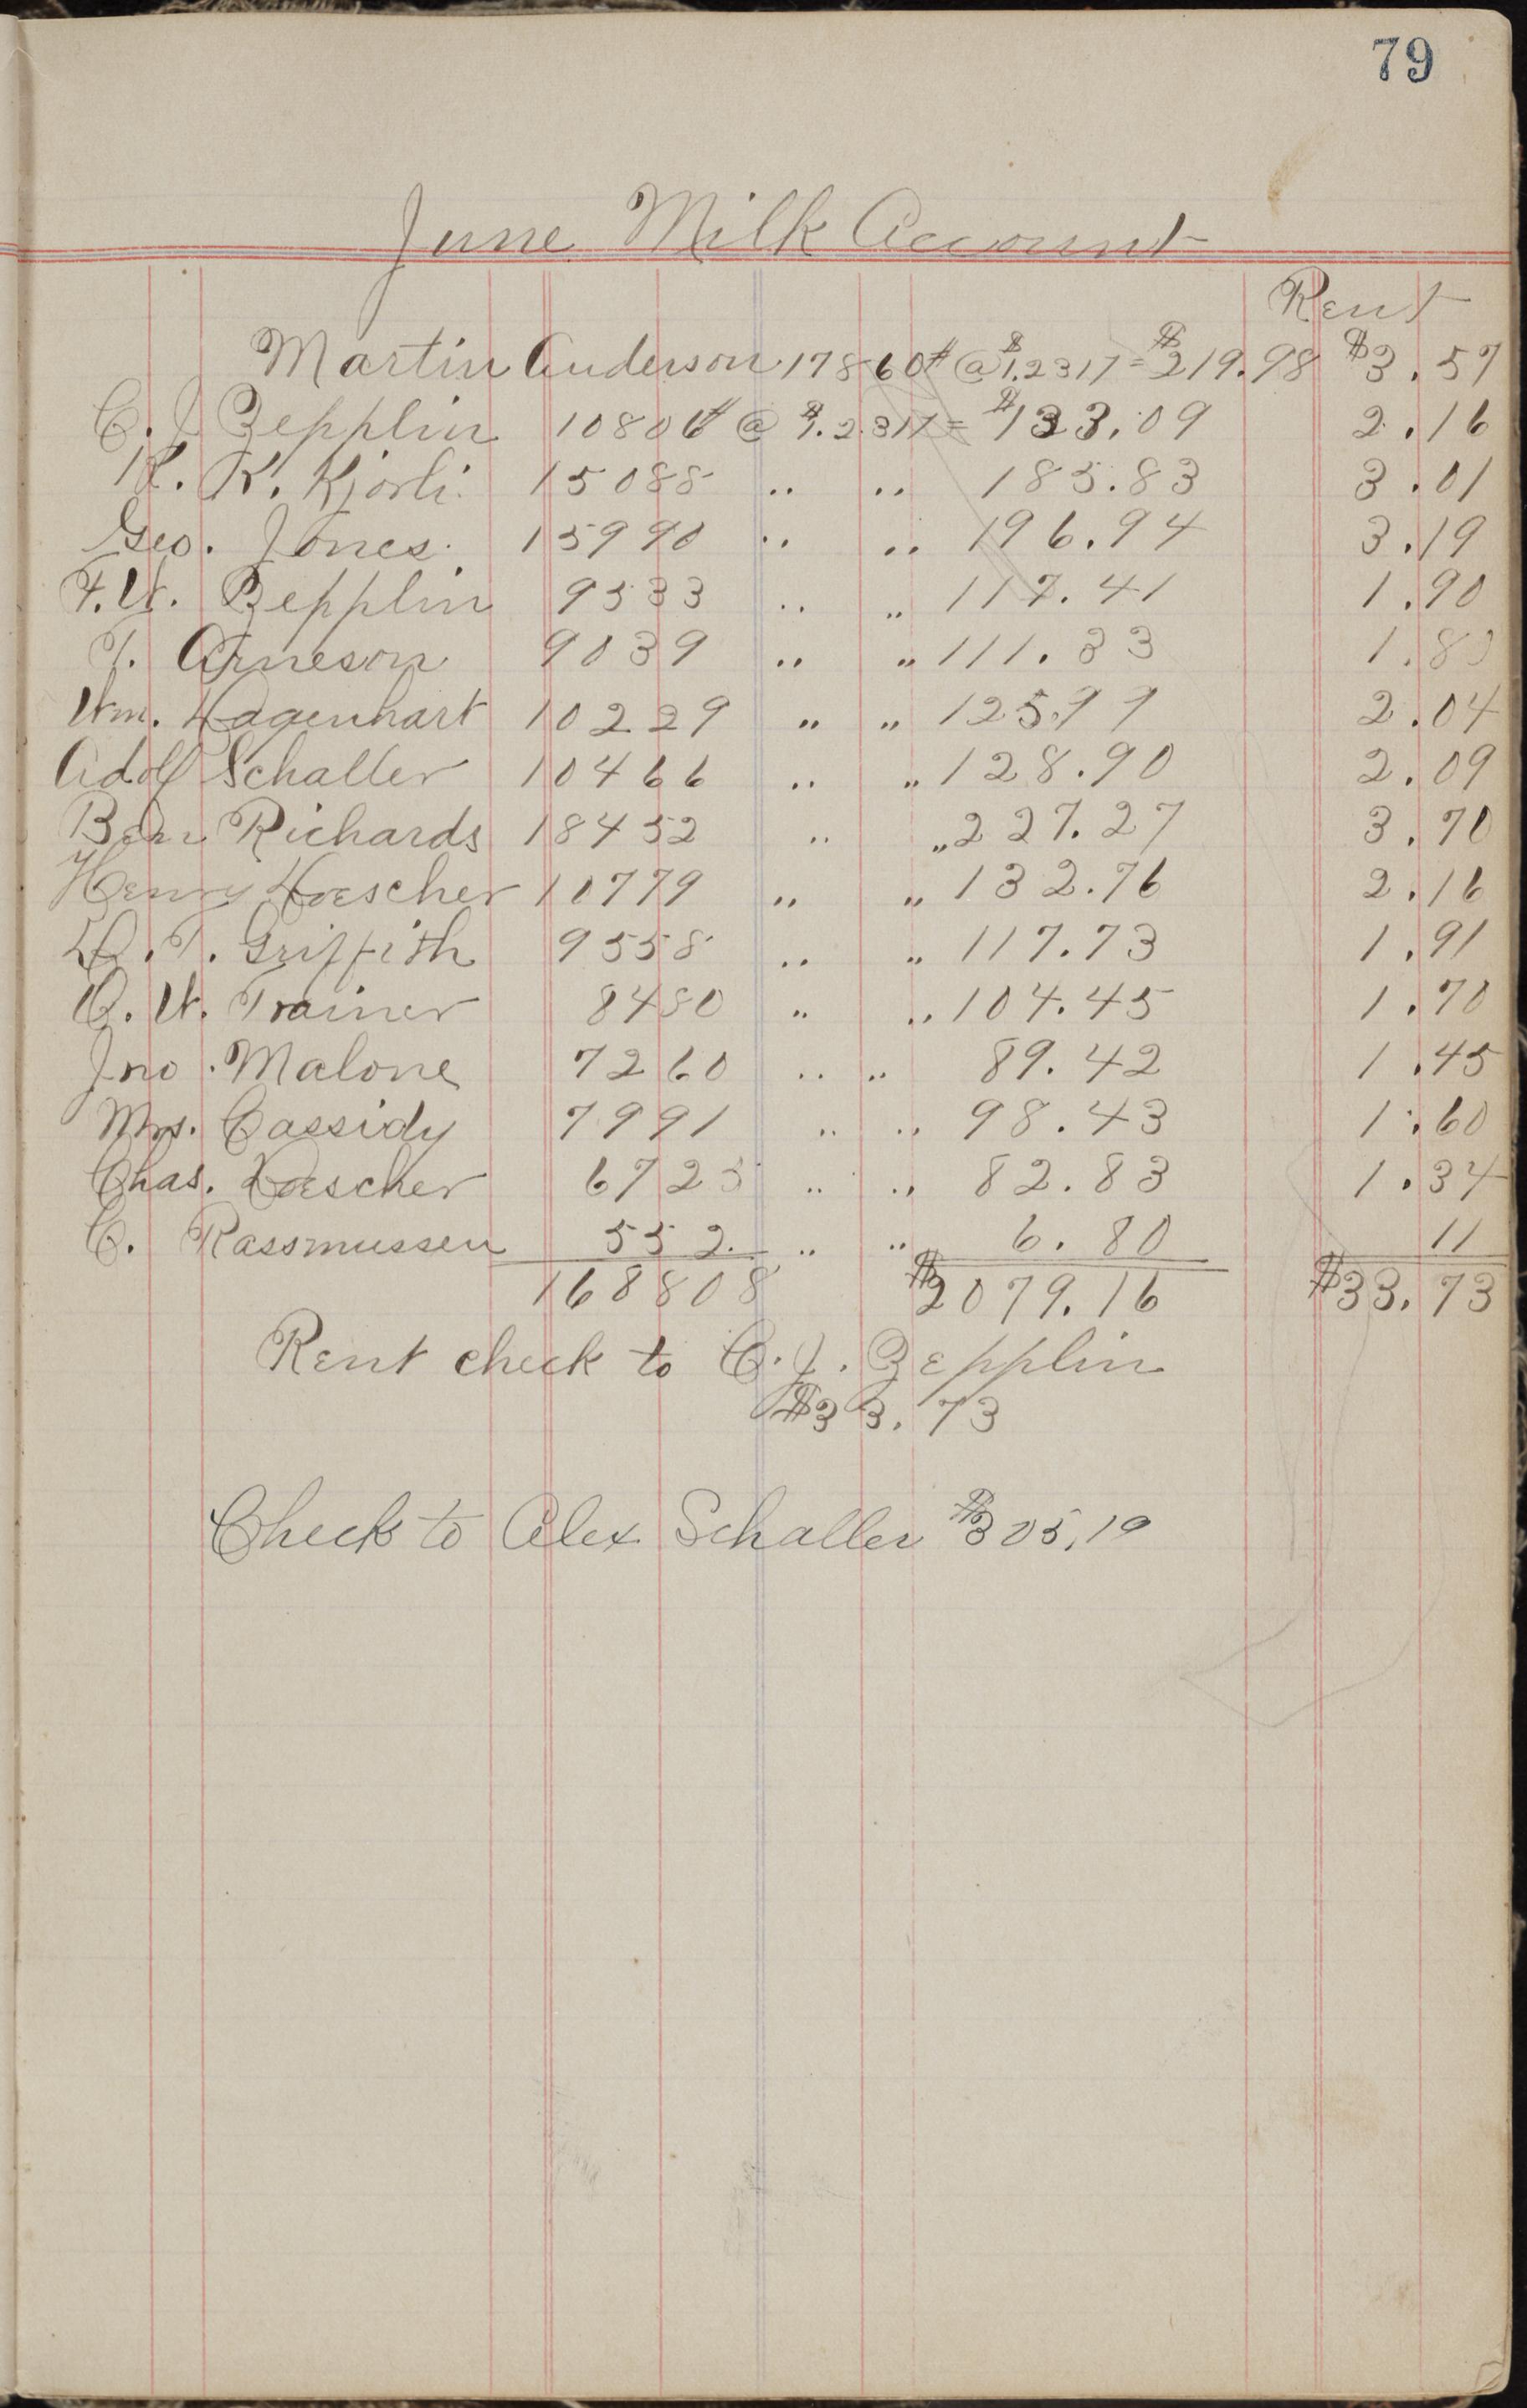 79
June Milk Account
Rent
Martin Anderson 17860# @ $1.2317 = $219.98 $3.57
C. J. Zepplin 10806# @ $1.2317 = $133.09 2.16
K. K. Kjorli 15088 .. .. 185.83 3.01
Geo. Jones 15990 .. .. 196.94 3.19
F. W. Zepplin 9533 .. .. 117.41 1.90
T. Arneson 9039 .. .. 111.33 1.80
Wm. Hagenhart 10229 .. .. 125.99 2.04
Adolf Schaller 10466 .. .. 128.90 2.09
Ben Richards 18452 .. .. 227.27 3.70
Henry Loescher 10779 .. .. 132.76 2.16
D. T. Griffith 9558 .. .. 117.73 1.91
C. W. Trainer 8480 .. .. 104.45 1.70
Jno. Malone 7260 .. .. 89.42 1.45
Mrs. Cassidy 7991 .. .. 98.43 1.60
Chas. Loescher 6725 .. .. 82.83 1.34
C. Rassmussen 552 .. .. 6.80 11
168808 $2079.16 $33.73
Rent check to C. J. Zepplin
$33.73
Check to Alex Schaller $305.19